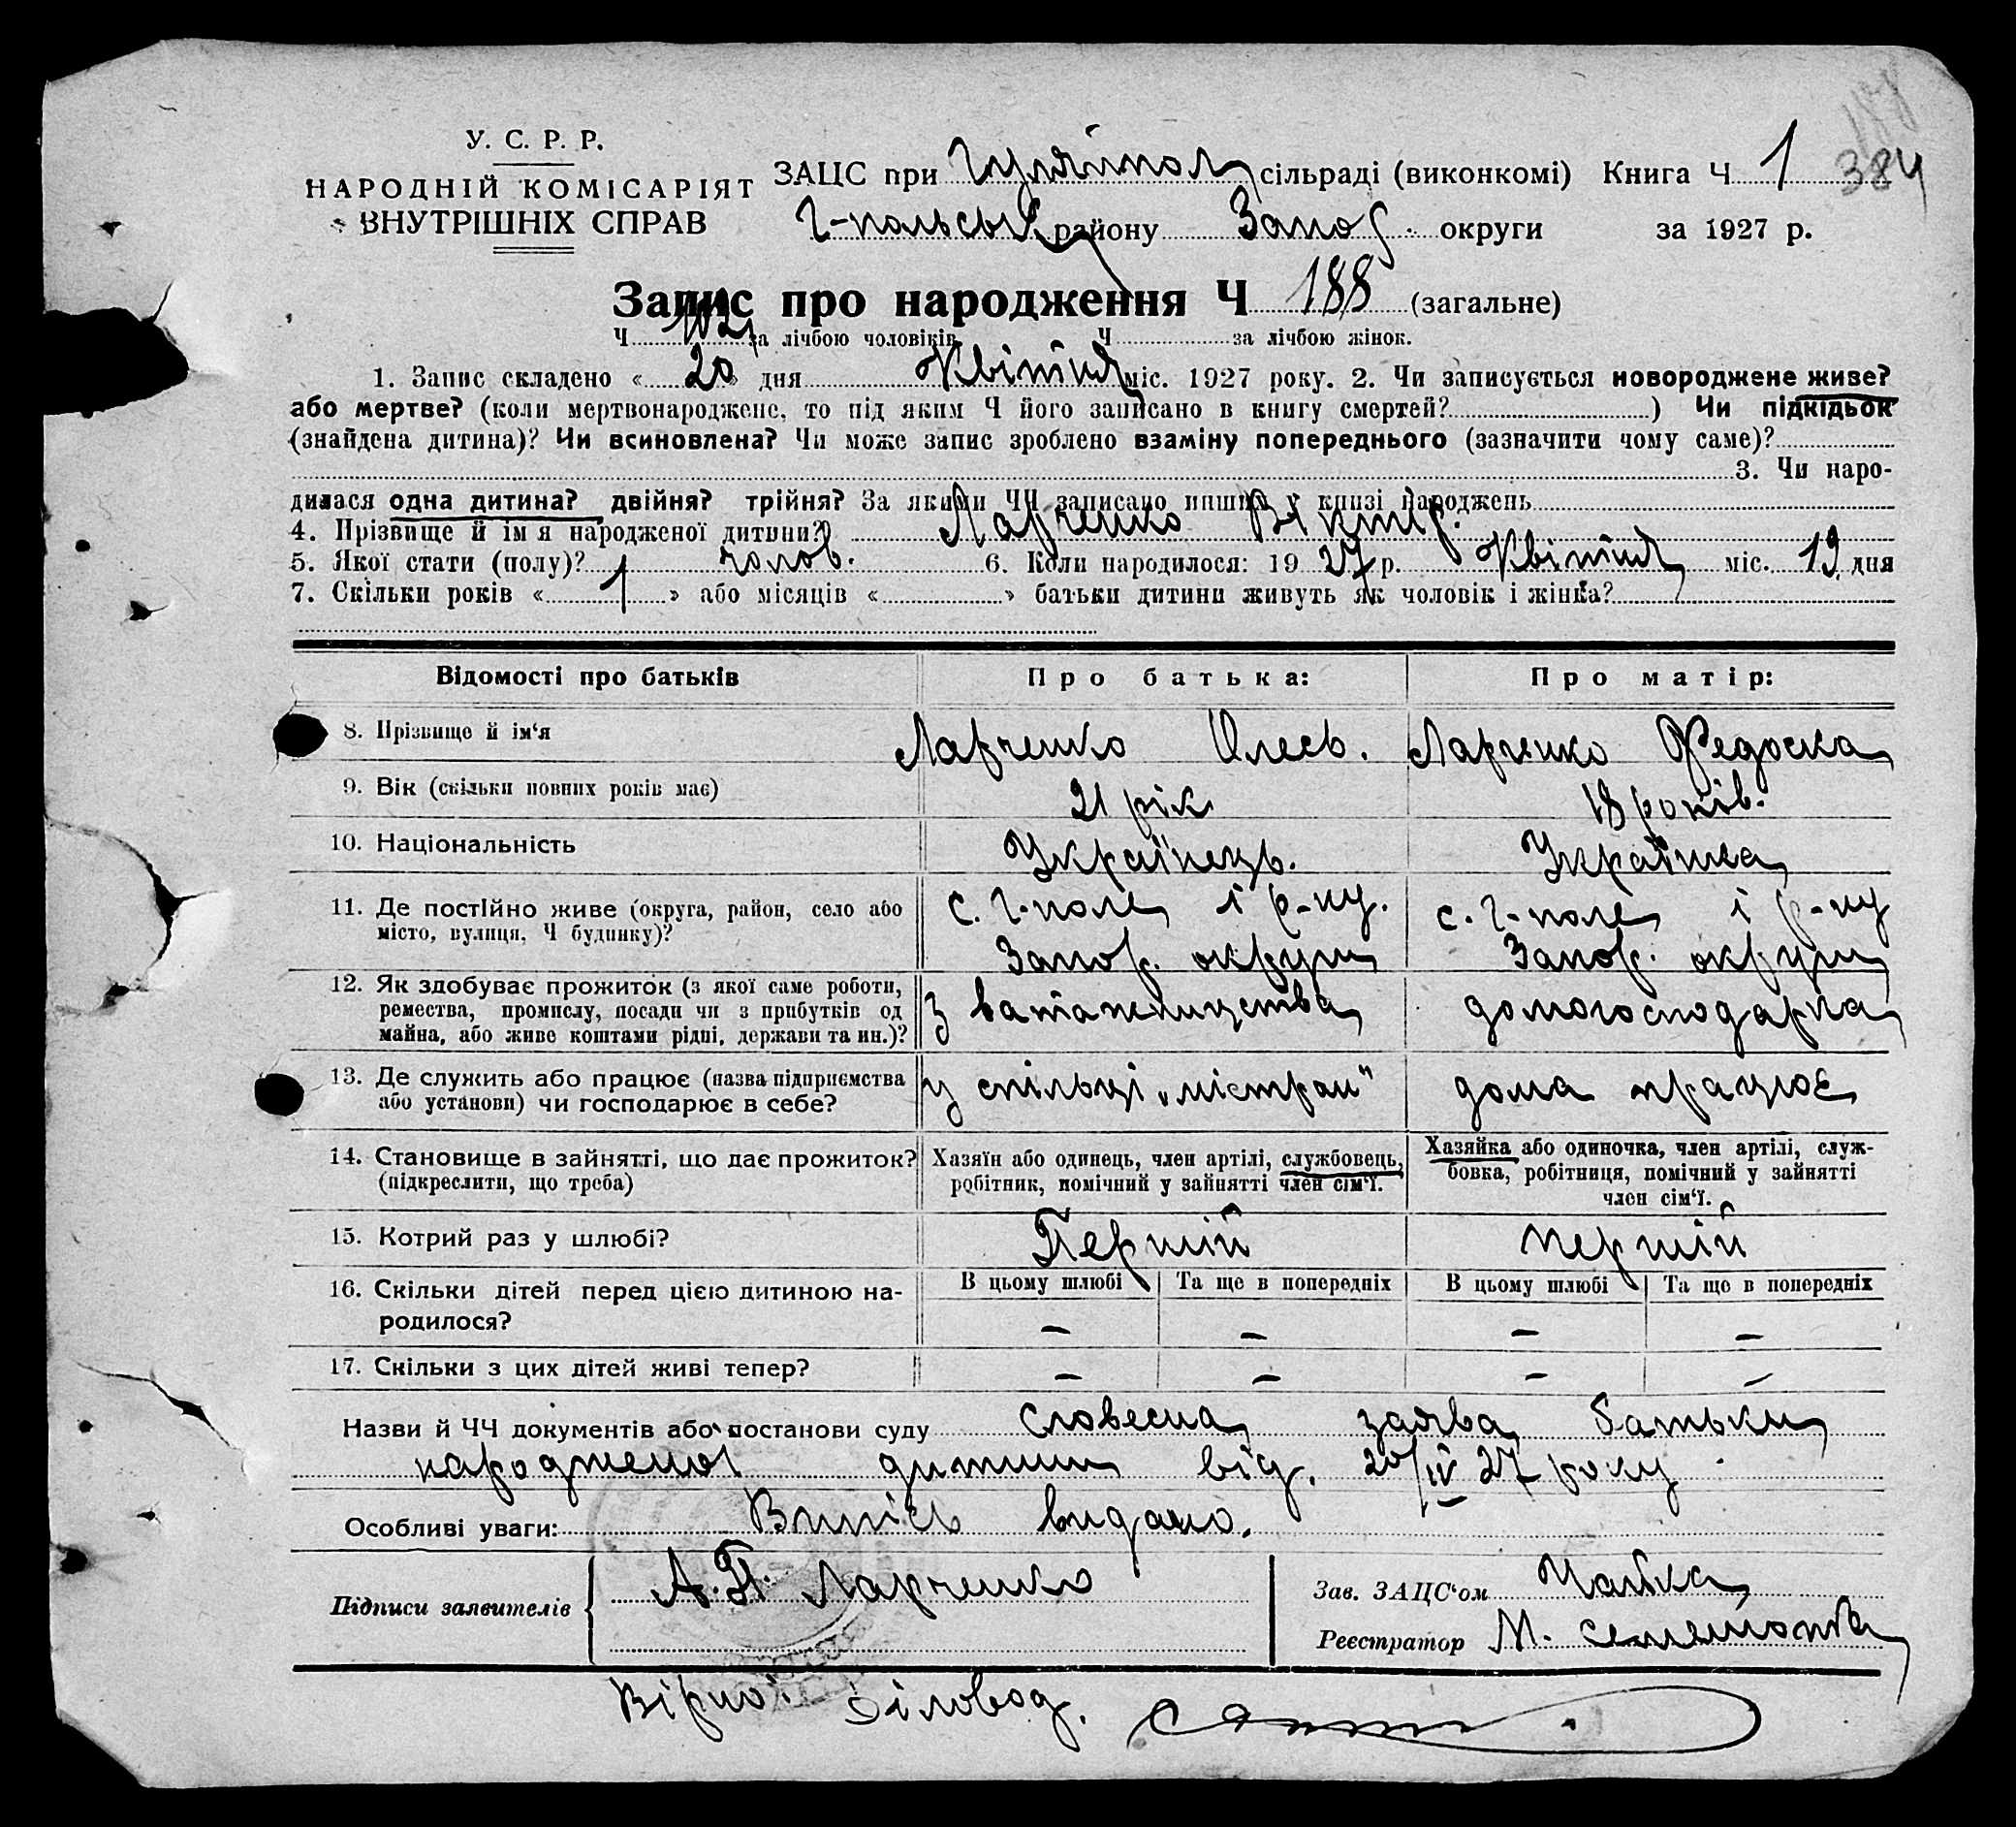 384
У. С. Р. Р.
НАРОДНІЙ КОМІСАРІЯТ
ВНУТРІШНІХ СПРАВ
ЗАЦС при Гуляйпол сільраді (виконкомі) Книга Ч 1
Г-польськ району Запор. округи за 1927 р.
Запис про народження Ч 188 (загальне)
Ч 102 за лічбою чоловіків Ч за лічбою жінок.
1. Запис складено « 20 » дня Квітня міс. 1927 року. 2. Чи записується новороджене живе?
або мертве? (коли мертвонароджене, то під яким Ч його записано в книгу смертей? ) Чи підкідьок
(знайдена дитина)? Чи всиновлена? Чи може запис зроблено взаміну попереднього (зазначити чому саме)?
3. Чи наро-
дилася одна дитина? двійня? трійня? За якими ЧЧ записано инших у книзі народжень
4. Прізвище й ім'я народженої дитини? Ларченко Віктор.
5. Якої стати (полу)? чолов. 6. Коли народилося: 19 27 р. Квітня міс. 19 дня
7. Скільки років « 1 » або місяців « » батьки дитини живуть як чоловік і жінка?
Відомості про батьків Про батька: Про матір:
8. Прізвище й ім'я Ларченко Олесь. Ларченко Федоска
9. Вік (скільки повних років має) 21 рік 18 років.
10. Національність Українець. Українка
11. Де постійно живе (округа, район, село або с. Г-поле і р-ну. с. Г-поле і р-ну
місто, вулиця, Ч будинку)? Запор. округи Запор. округи
12. Як здобуває прожиток (з якої саме роботи,
ремества, промислу, посади чи з прибутків од з домогосподарка
майна, або живе коштами рідні, держави та ин.)?
13. Де служить або працює (назва підприємства у спільці дома працює
або установи) чи господарює в себе?
14. Становище в зайнятті, що дає прожиток? Хазяїн або одинець, член артілі, службовець, Хазяйка або одиночка, член артілі, служ-
(підкреслити, що треба) робітник, помічний у зайнятті член сім'ї. бовка, робітниця, помічний у зайнятті
член сім'ї.
15. Котрий раз у шлюбі? Перший перший
16. Скільки дітей перед цією дитиною на- В цьому шлюбі Та ще в попередніх В цьому шлюбі Та ще в попередніх
родилося? — — — —
17. Скільки з цих дітей живі тепер? — — — —
Назви й ЧЧ документів або постанови суду Словесна заява батьки
народженої дитини від. 20/IV 27 року
Особливі уваги: Випісь видано.
Підписи заявителів А.П. Ларченко
Зав. ЗАЦС'ом Чайка
Реєстратор М.
Вірно: Діловод.